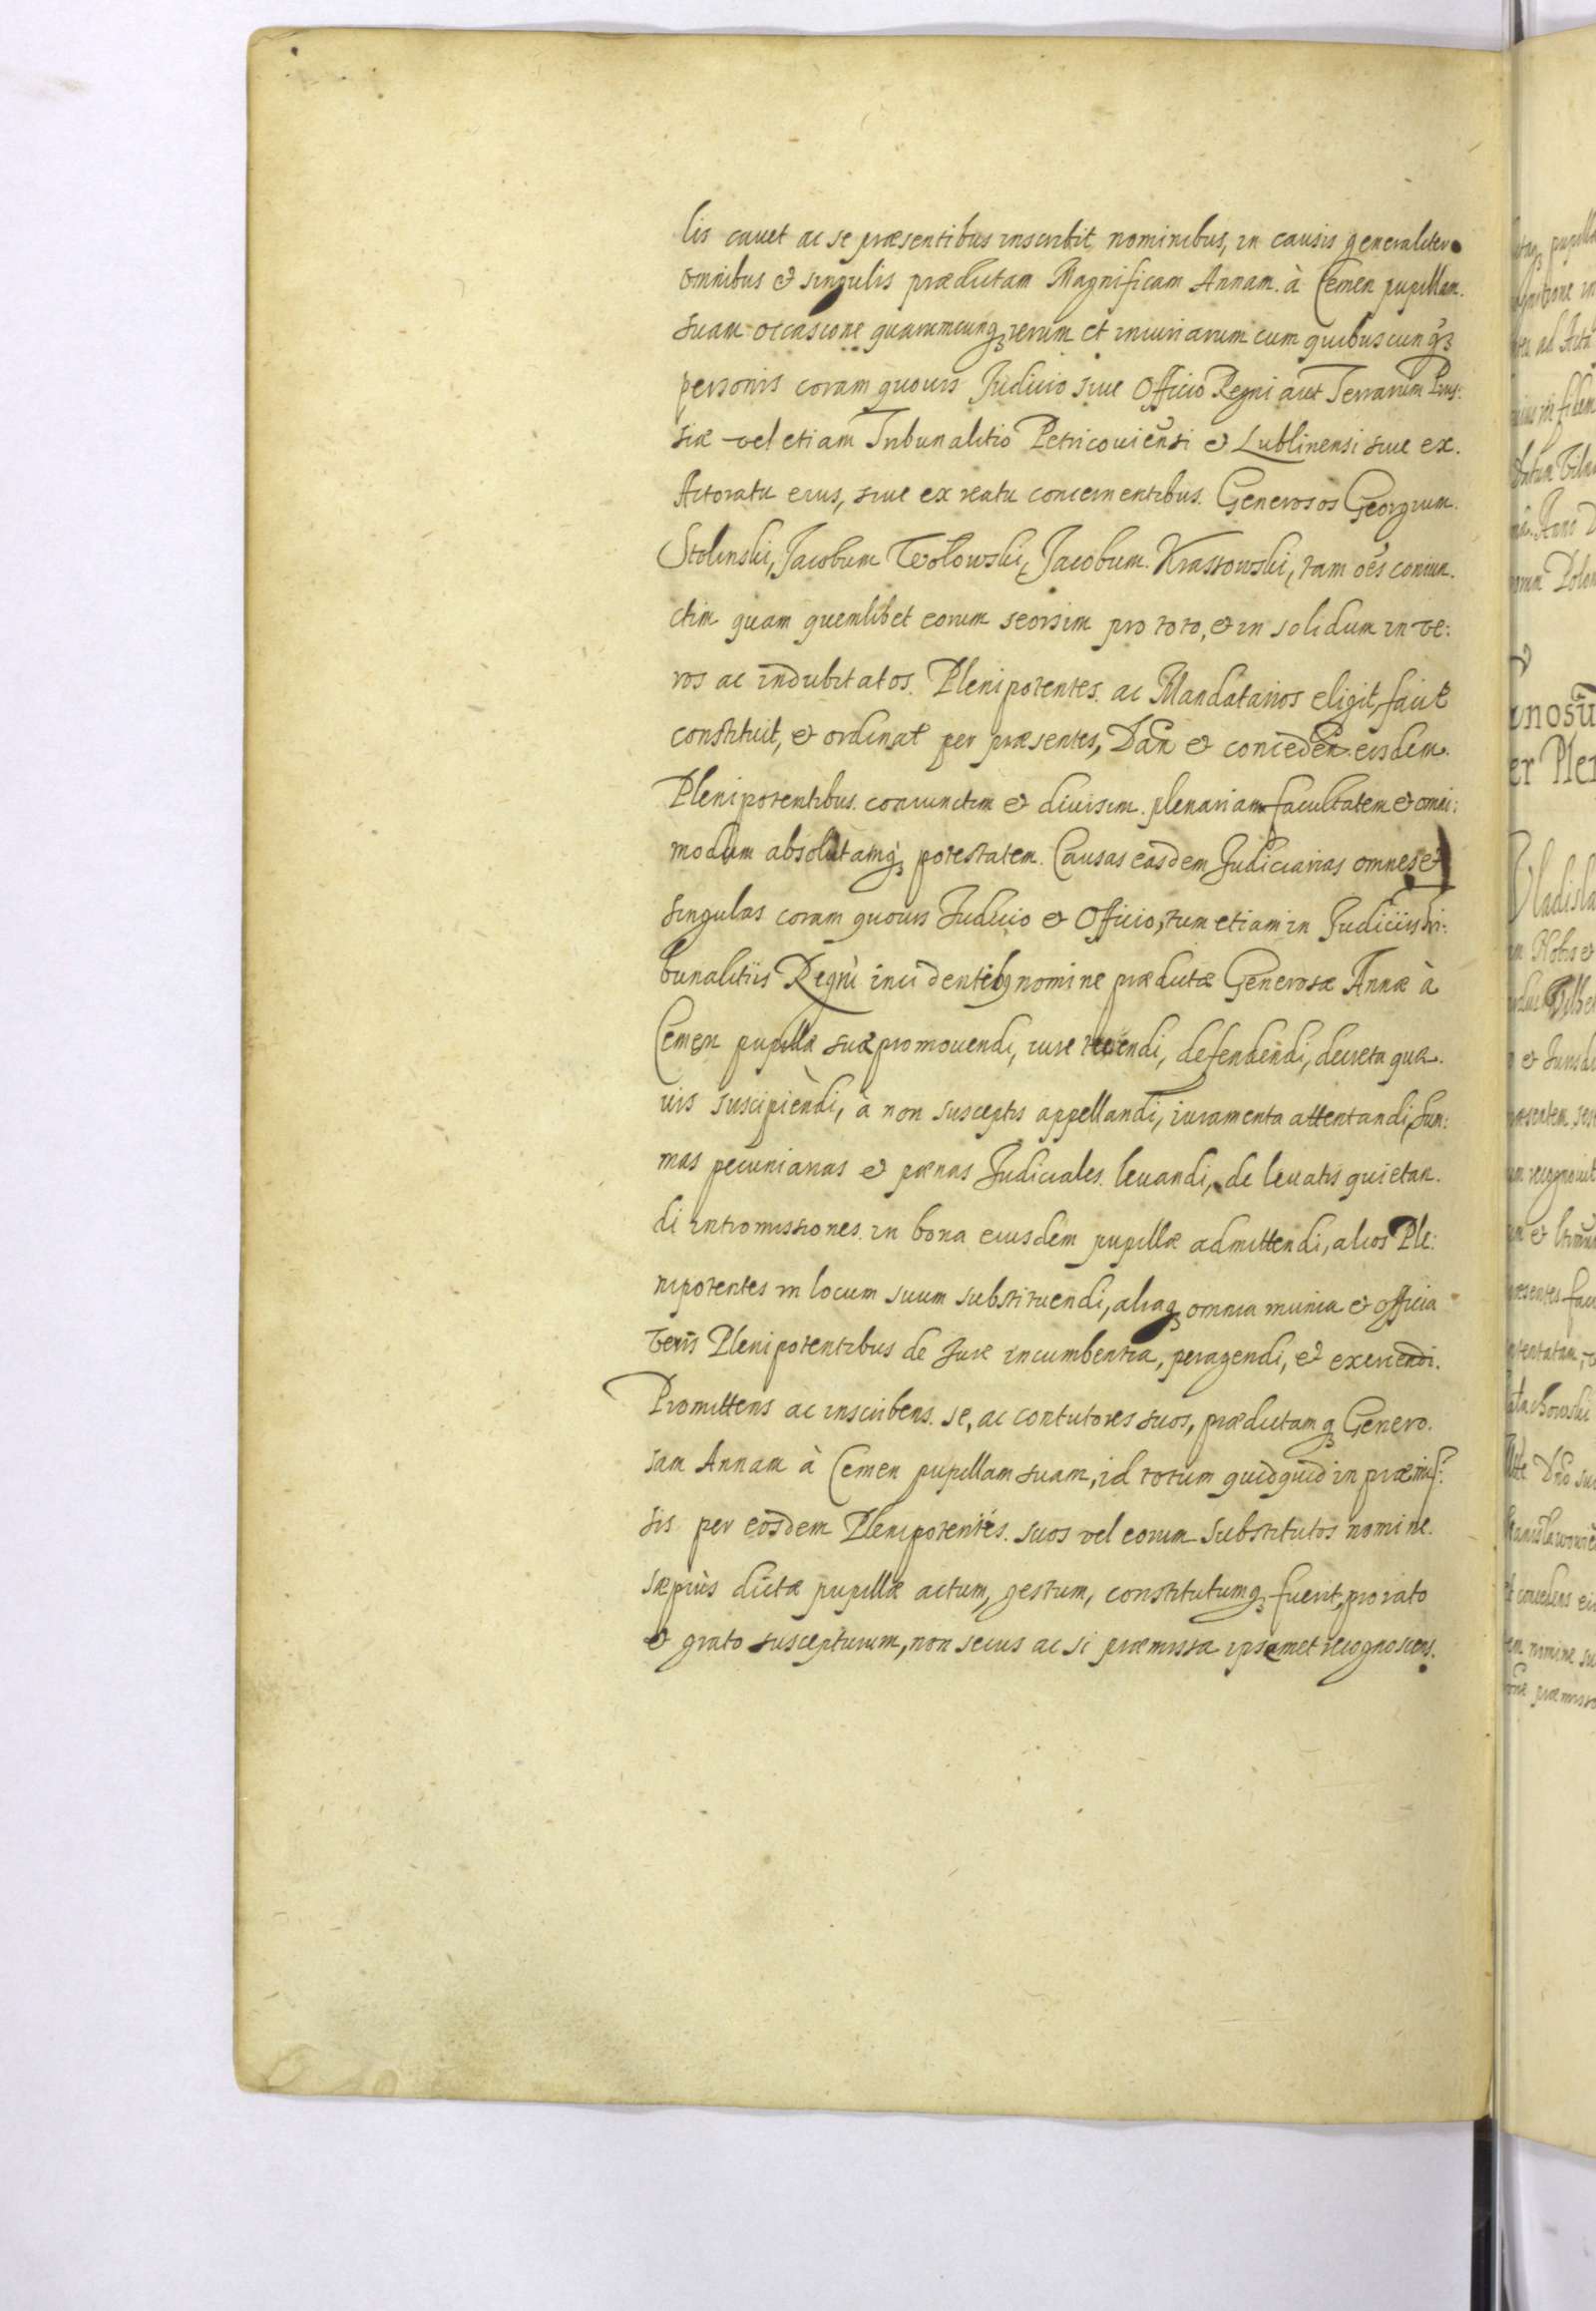 lis cauet ac se præsentibus inscribit, nominibus, in causis generaliter
omnibus & singulis prædictam Magnificam Annam à Cemen pupillam
suam occasione quarumcunq₃ rerum et iniuriarum cum quibuscunq₃
personis coram quouis Judicio siue Officio Regni aut Terrarum Prus:
siæ vel etiam Tribunalitio Petricouiēnsi & Lublinensi siue ex
Actoratu eius, siue ex reatu concernentibus. Generosos Georgium
Stolinski, Jacobum Wolowski, Jacobum Krassowski, tam oēs coniun.
ctim quam quemlibet eorum seorsim pro toto, & in solidum in ve:
ros ac indubitatos Plenipotentes ac Mandatarios eligit, facit
constituit, & ordinat per præsentes, Dan̄ & concedeñ eisdem
Plenipotentibus coniunctim & diuisim plenariam facultatem & omni:
modam absolutamq₃ potestatem. Causas easdem Judiciarias omnes et
singulas coram quouis Judicio & Officio, tum etiam in Judicijs tri:
bunalitijs Regni incidentibq nomine prædictæ Generosæ Annæ à
Cemen pupillæ suæ promouendi, iure defendendi, decreta quæ
uis suscipiendi, à non susceptis appellandi, iuramenta attentandi, sum:
mas pecuniarias & pænas Judiciales leuandi, de leuatis quietan.
di intromissiones in bona eiusdem pupillæ admittendi, alios Ple:
nipotentes in locum suum substituendi, aliaq₃ omnia munia & officia
veris Plenipotentibus de Jure incumbentia, peragendi, & exercendi.
Promittens ac inscribens se, ac contutores suos, prædictamq₃ Genero.
sam Annam à Cemen pupillam suam, id totum quidquid in præmis:
sis per eosdem Plenipotentes suos vel eorum substitutos nomine
sæpiùs dictæ pupillæ actum, gestum, constitutumq₃ fuerit, pro rato
& grato suscepturum, non secus ac si præmissa ipsemet recognoscens.